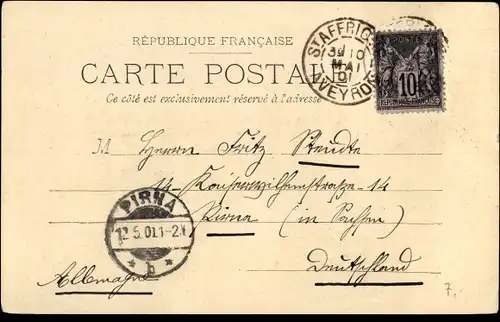 RÉPUBLIQUE FRANÇAISE
CARTE POSTALE
Ce côté est exclusivement réservé à l'adresse
ST AFFRIQUE
10
MAI
01
AVEYRON
POSTES
10
REPUBLIQUE FRANÇAISE
M Herrn Fritz Steudte
14 - Kaiserwilhelmstraße - 14
Pirna (in Sachsen)
Deutschland
Allemagne
PIRNA
12.5.01.1-2N
* b *
7,